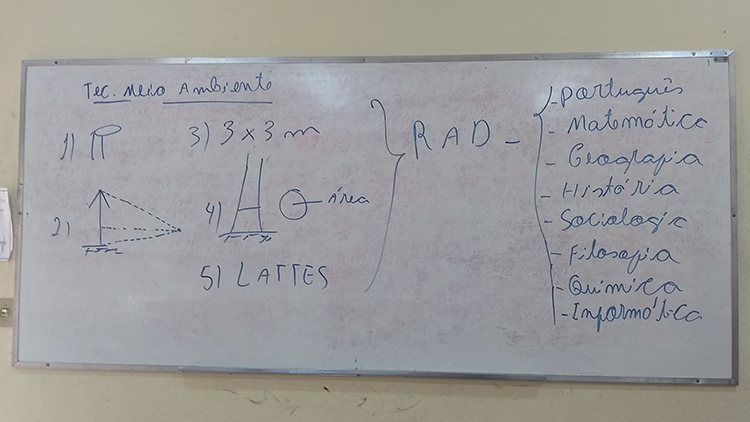 Tec. Meio Ambiente
1) π
3) 3 x 3 m
2)
4)
Área
5) LATTES
RAD -
- Português
- Matemática
- Geografia
- História
- Sociologia
- Filosofia
- Química
- Informática